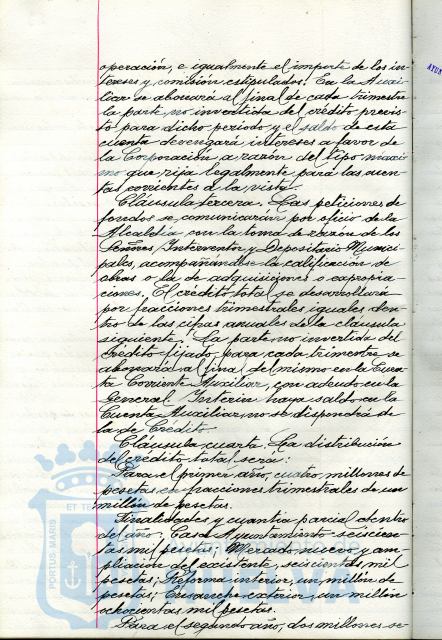 operación, e igualmente el importe de los in-
tereses y comisión estipulados. En la Auxi-
liar se abonará al final de cada trimestre
la parte no invertida del crédito previs-
to para dicho periodo y el saldo de esta
cuenta devengará intereses a favor de
la Corporación a razón del tipo máxi-
mo que rija legalmente para las cuen-
tas corrientes a la vista.
Cláusula tercera. Las peticiones de
fondos se comunicarán por oficio de la
Alcaldía con la toma de razón de los
Señores Interventor y Depositario Munici-
pales, acompañándose la calificación de
obras o la de adquisiciones o expropia-
ciones. El crédito total se desarrollará
por fracciones trimestrales iguales den-
tro de las cifras anuales de la cláusula
siguiente. La parte no invertida del
crédito fijado para cada trimestre se
abonará al final del mismo en la Cuen-
ta Corriente Auxiliar, con adeudo en la
General. Interin haya saldo en la
Cuenta Auxiliar no se dispondrá de
la de Crédito.
Cláusula cuarta. La distribución
del crédito total será:
Para el primer año, cuatro millones de
pesetas en fracciones trimestrales de un
millón de pesetas.
Finalidades y cuantía parcial dentro
del año: Casa Ayuntamiento, doscien-
tas mil pesetas; Mercado nuevo y am-
pliación del existente, seiscientas mil
pesetas; Reforma interior, un millón de
pesetas; Ensanche exterior, un millón
ochocientas mil pesetas.
Para el segundo año, dos millones se-
PORTUS MARIS
ET TE
Ayuntamiento de